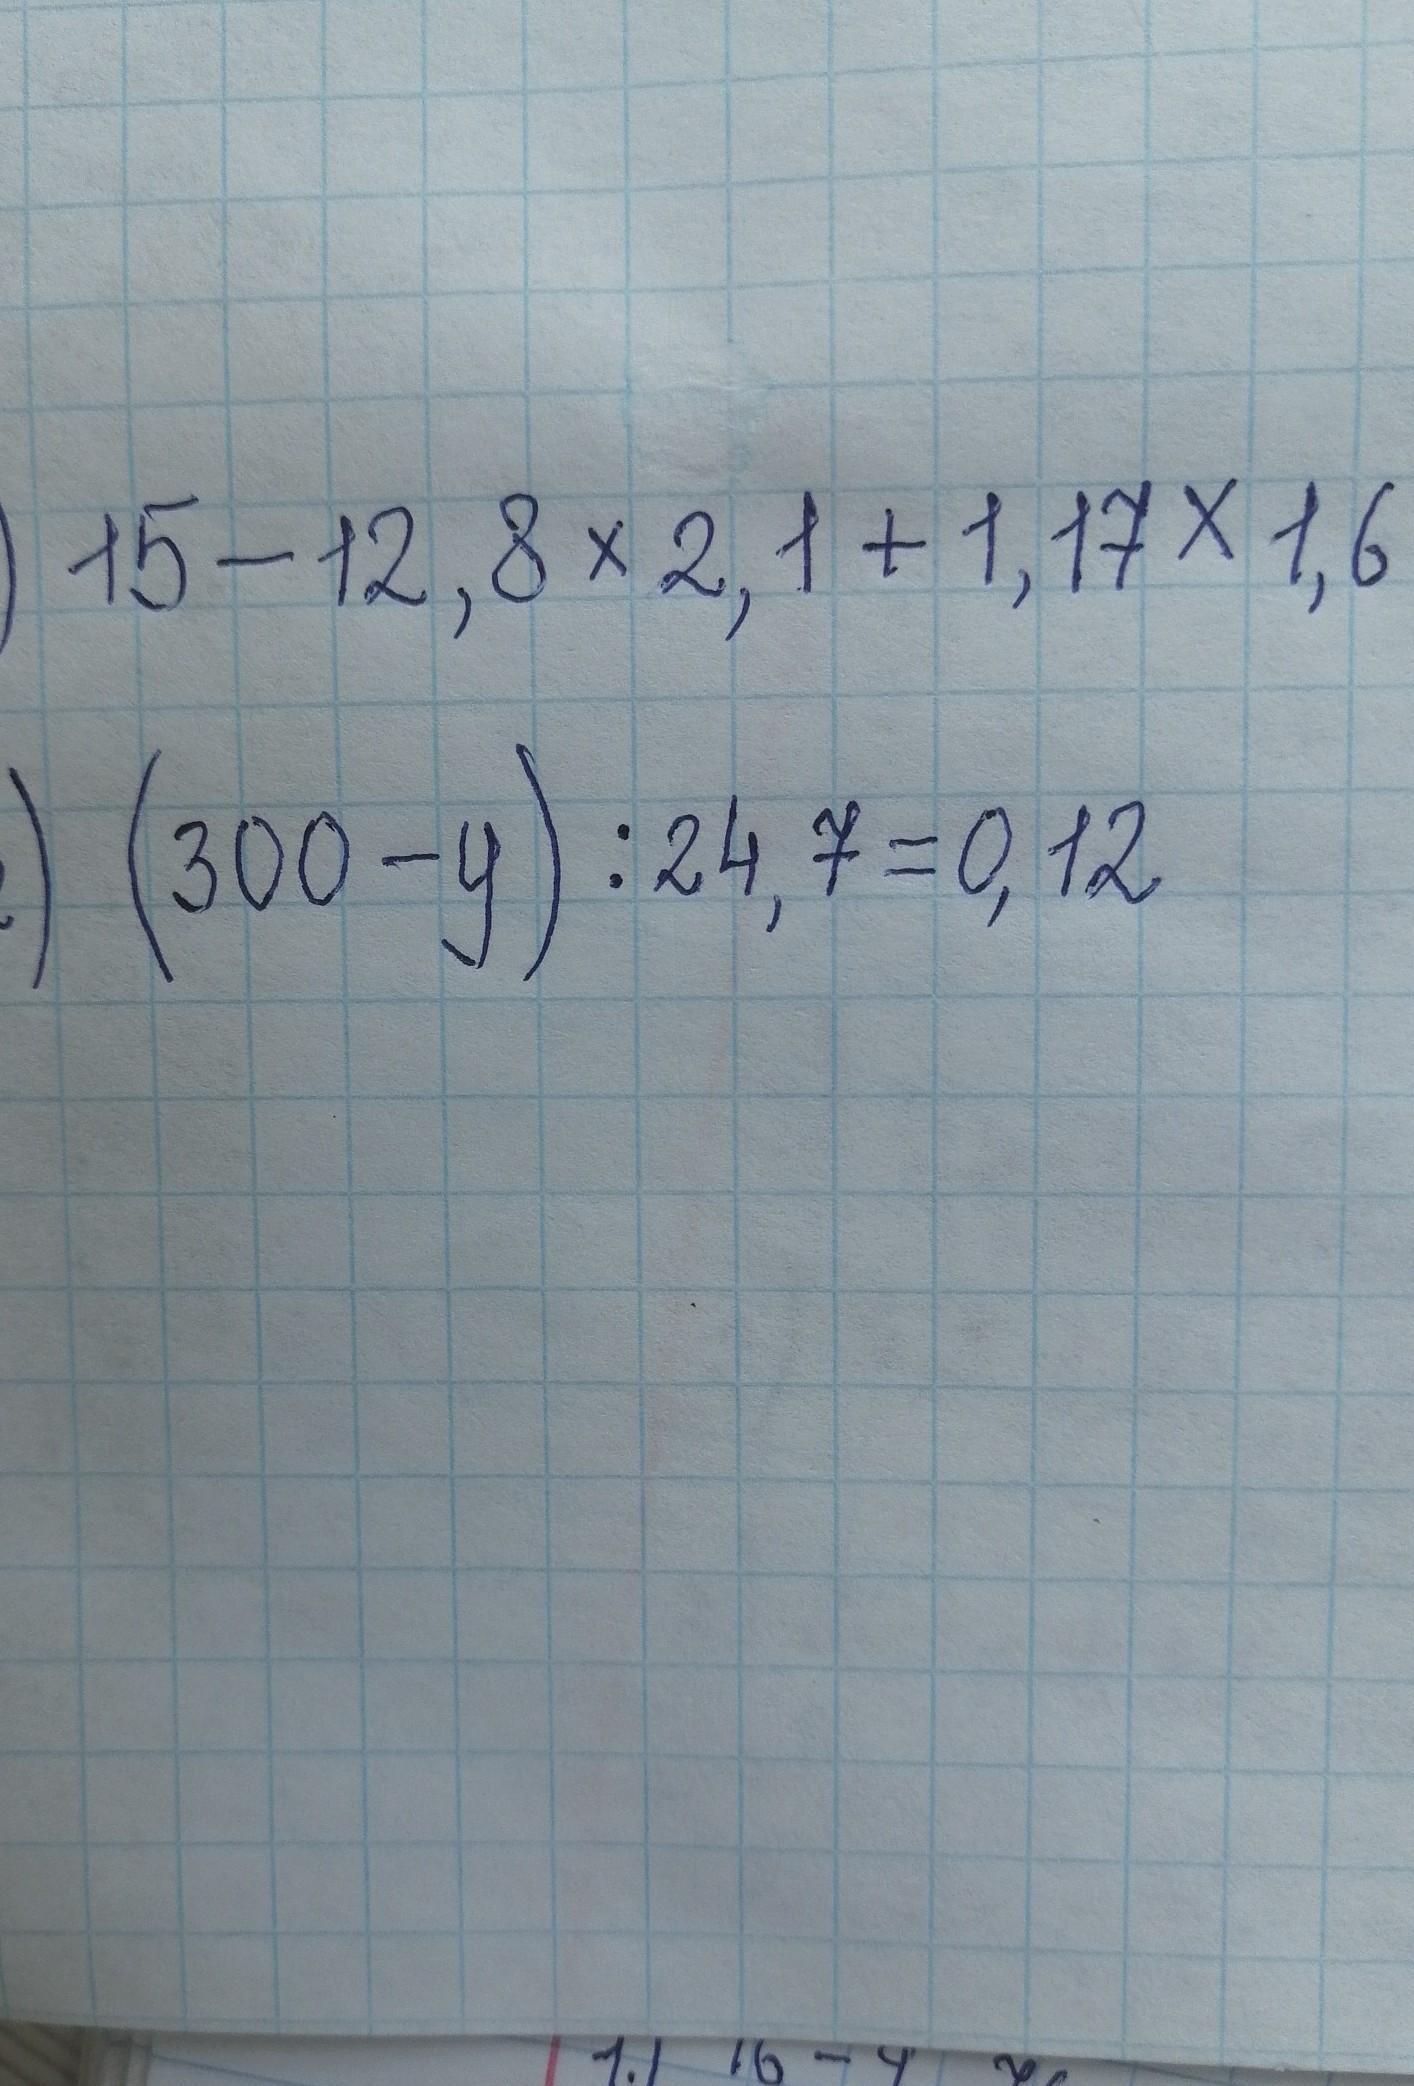 ) 15 - 12,8 × 2,1 + 1,17 × 1,6
) (300 - y) : 24,7 = 0,12
1.) 16 - y